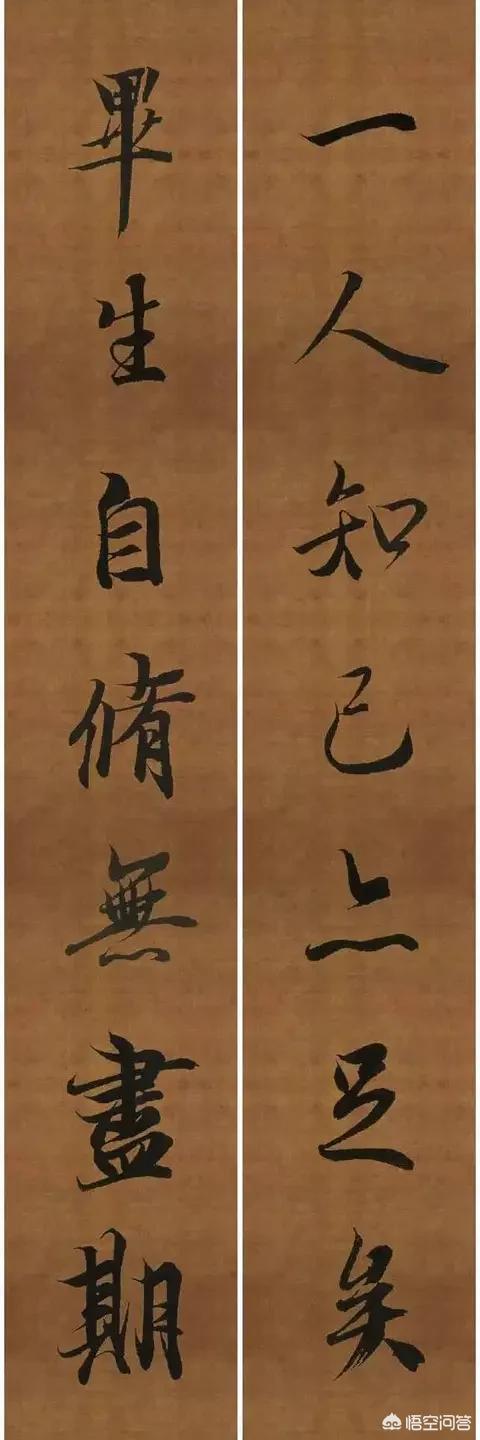 一人知己亦足矣
畢生自脩無盡期
悟空问答